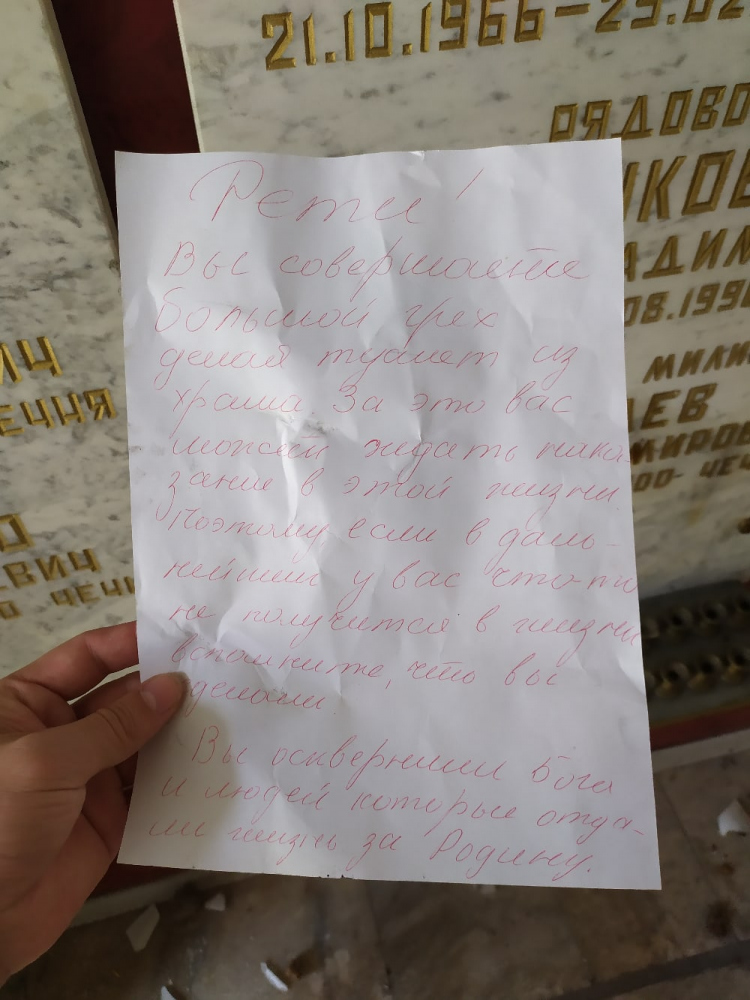 21.10.1966-
РЯДОВО
ИКОВ
АДИМ
08.1996
МИЛИ
АЕВ
МИРОВ
00- ЧЕЧ
ИЧ
ЕЧНЯ
О
ЕВИЧ
О ЧЕЧН
Рети!
Вы совершаете
большой грех
делая туалет из
храма За это вас
может ждать нака-
зание в этой жизни.
Поэтому если в даль-
нейшем у вас что-то
не получится в жизни
вспомните, что вы
делали.
Вы осквернили Бога
и людей которые отда-
ли жизнь за Родину.